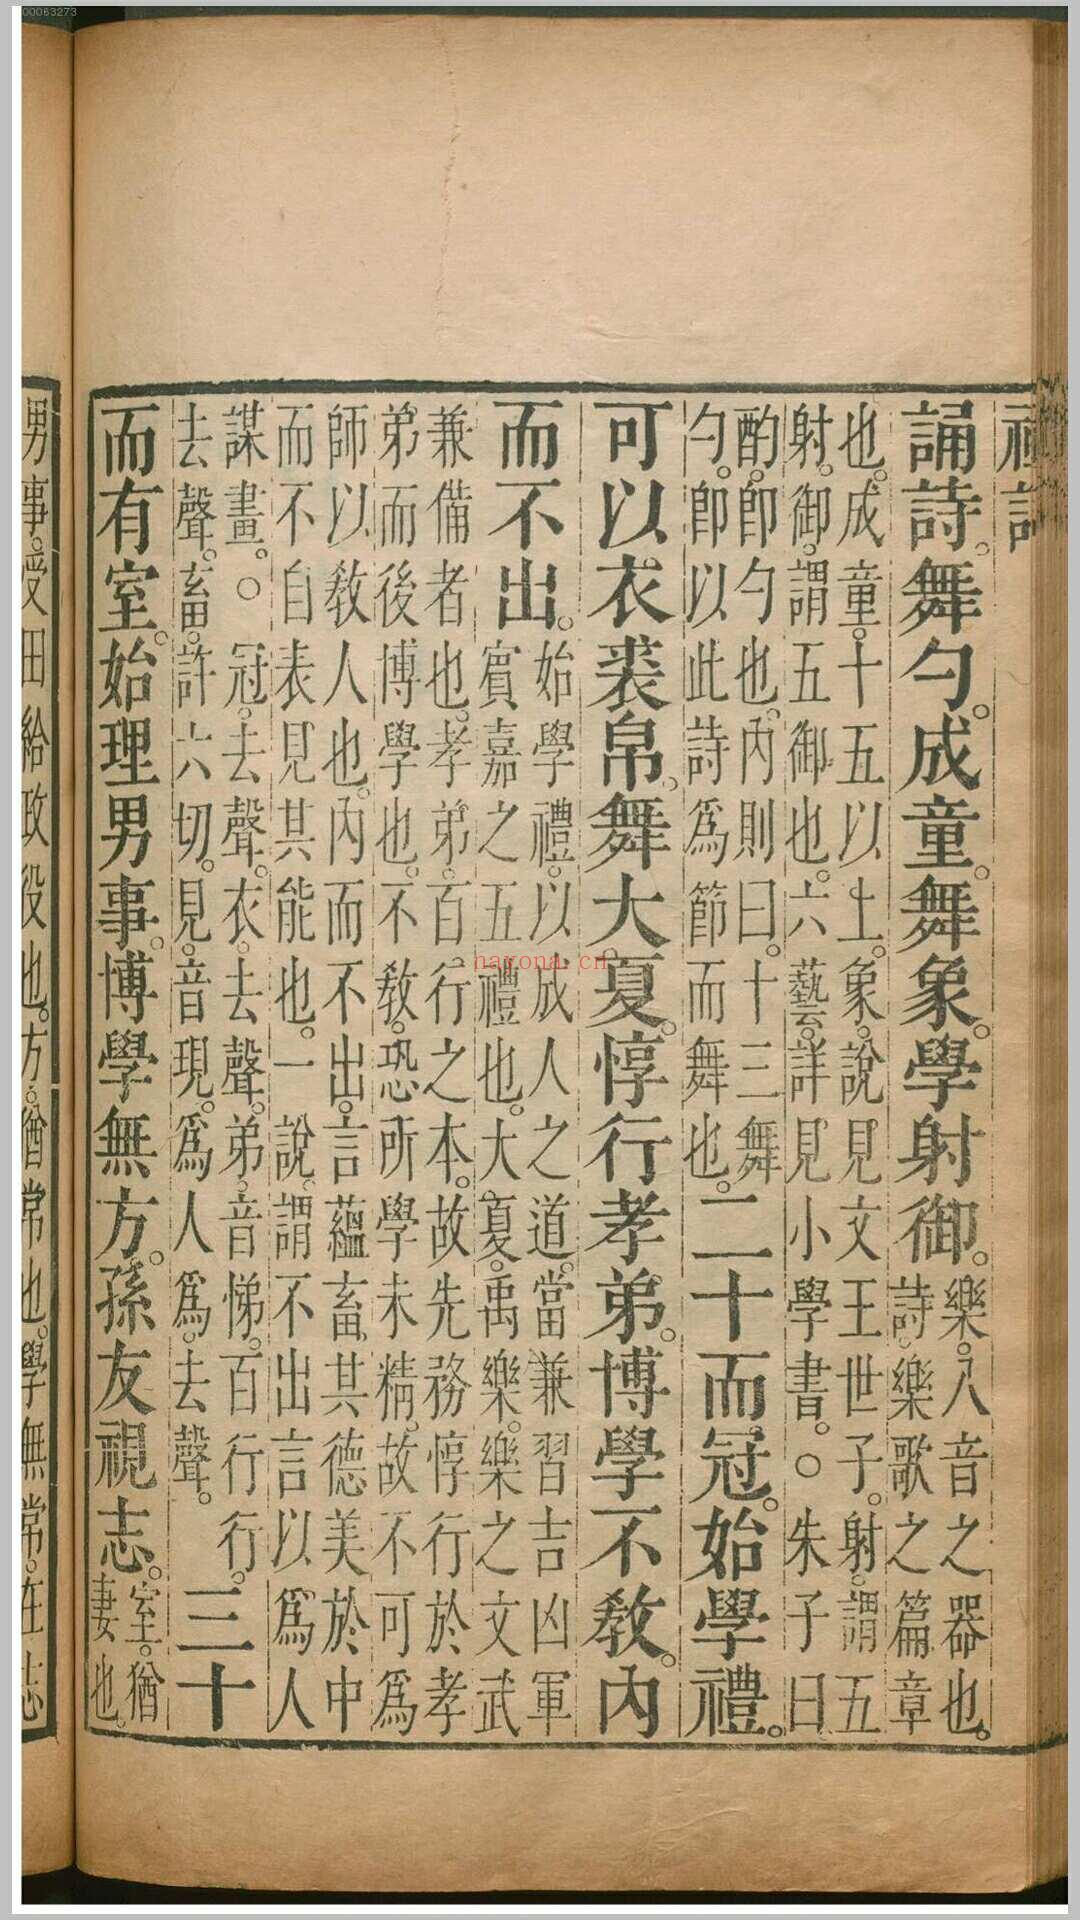 00063273
禮記
誦詩。舞勺。成童。舞象。學射御。樂。八音之器也。
詩。樂歌之篇章
也。成童。十五以上。象。說見文王世子。射。謂五
射。御。謂五御也。六藝。詳見小學書。○朱子曰
酌。卽勺也。內則曰。十三舞
勺。卽以此詩爲節而舞也。二十而冠。始學禮。
可以衣裘帛。舞大夏。惇行孝弟。博學不敎。內
而不出。始學禮。以成人之道。當兼習吉凶軍
賓嘉之五禮也。大夏。禹樂。樂之文武
兼備者也。孝弟。百行之本。故先務惇行於孝
弟而後博學也。不敎。恐所學未精。故不可爲
師以敎人也。內而不出。言蘊畜其德美於中
而不自表見其能也。一說。謂不出言以爲人
謀畫。○冠。去聲。衣。去聲。弟。音悌。百行行。
去聲。畜。許六切。見。音現。爲人爲。去聲。三十
而有室。始理男事。博學無方。孫友視志。室。猶
妻也。
男事。受田給政役也。方。猶常也。學無常。在志
nayona.cn